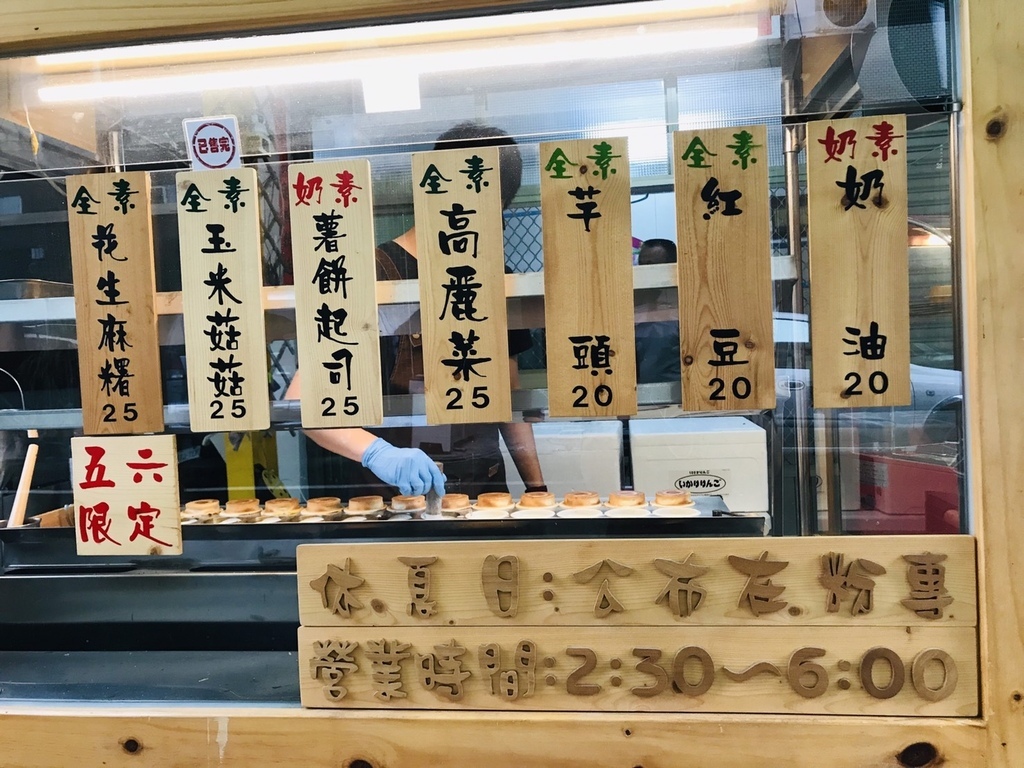 已售完
全素
花生麻糬
25
全素
玉米菇菇
25
奶素
薯餅起司
25
全素
高麗菜
25
全素
芋頭
20
全素
紅豆
20
奶素
奶油
20
五六
限定
いかりりんご
休.夏日:公布在.粉專
營業時間:2:30~6:00